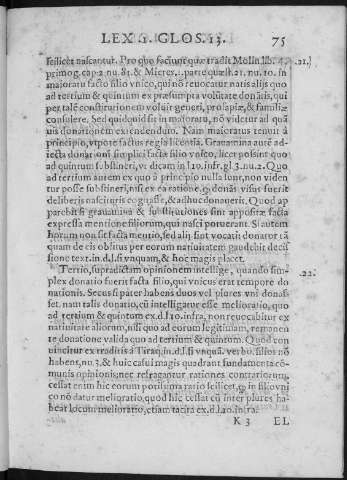 LEX .1. GLOS. 13. 75
scilicet nascantur. Pro quo faciunt quæ tradit Molin. lib. 4. .21.
primog. cap. 2. nu. 81. & Mieres. 1. parte quæst. 21. nu. 10. in
maioratu facto filio vnico, qui nō reuocatur natis alijs quo
ad tertium & quintum ex præsumpta volūtate donātis, qui
per talē constitutionem voluit generi, prosapiæ, & familiæ
consulere. Sed quidquid sit in maioratu, nō videtur ad quā
uis donationem extendendum. Nam maioratus tenuit à
principio, vtpote factus regia licentia. Grauamina autē ad-
iecta donationi simplici factæ filio vnico, licet possint quo
ad quintum sustineri, vt dicam in l. 10. infr. gl. 3. nu. 2. Quo
ad tertium autem ex quo à principio nulla sunt, non viden
tur posse sustineri, nisi ex ea ratione, q donās visus fuerit
deliberis nascituris cogitasse, & adhuc donauerit. Quod ap
parebit si grauamina & substitutiones sint appositæ facta
expressa mentione filiorum, qui nasci potuerant. Si autem
horum non sit facta mentio, sed alij sint vocati donator tā
quam de eis oblitus per eorum natiuitatem gaudebit decisi
sione text. in. d. l. si vnquam, & hoc magis placet.
Tertio, supradictam opinionem intellige, quando sim- .22.
plex donatio fuerit facta filio, qui vnicus erat tempore do
nationis. Secus si pater habens duos vel plures vni donas-
set. nam talis donatio, cū intelligatur esse melioratio, quo
ad tertium & quintum ex. d. l. 10. infra, non reuocabitur ex
natiuitate aliorum, nisi quo ad eorum legitimam, remanen
te donatione valida quo ad tertium & quintum. Quod con
uincitur ex traditis à Tiraq. in. d. l. si vnquā. verbo. filios nō
habens, nu. 3. & huic casui magis quadrant fundamenta cō-
munis opinionis, nec refragantur rationes contrariorum,
cessat enim hic eorum potissima ratio scilicet, q in filio vni
co nō datur melioratio, quod hic cessat cū inter plures ha-
beat locum melioratio, etiam tacita ex. d. l. 10. infra.
K 3 EL